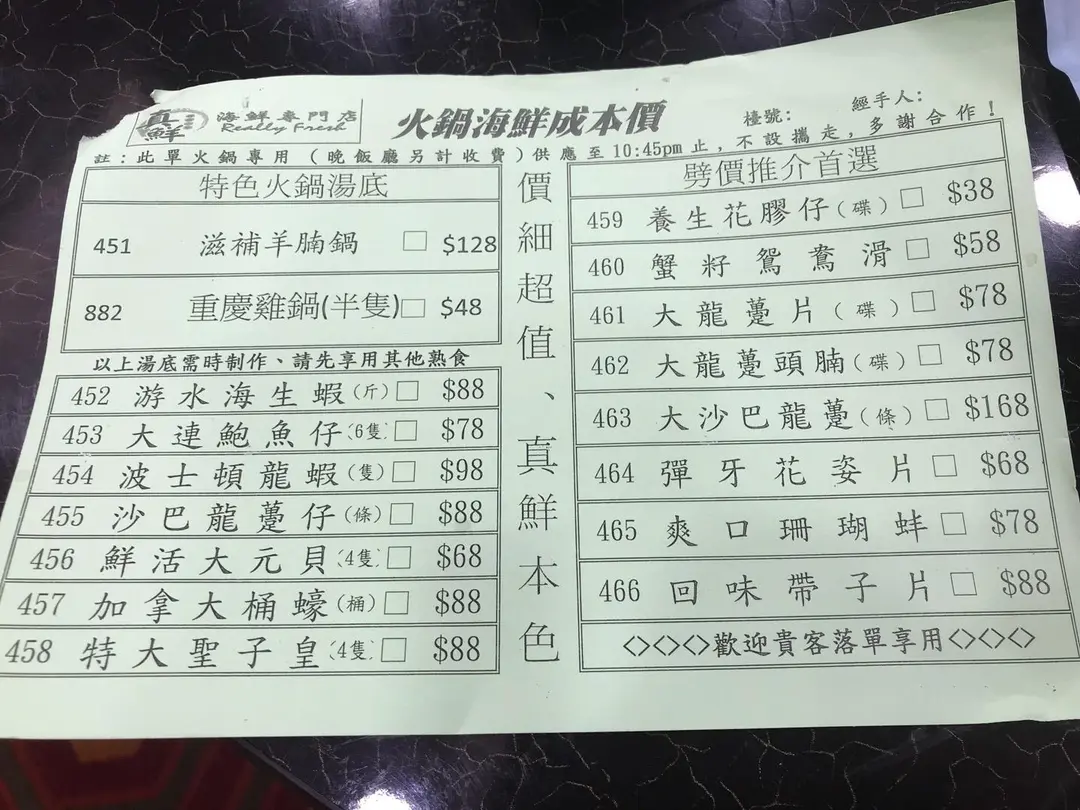 真鮮 海鮮專門店
Really Fresh
火鍋海鮮成本價
檯號: 經手人:
註:此單火鍋專用(晚飯廳另計收費)供應至10:45pm止,不設攜走,多謝合作!
特色火鍋湯底
451 滋補羊腩鍋 □ $128
882 重慶雞鍋(半隻) □ $48
以上湯底需時制作、請先享用其他熟食
452 游水海生蝦(斤) □ $88
453 大連鮑魚仔(6隻) □ $78
454 波士頓龍蝦(隻) □ $98
455 沙巴龍躉仔(條) □ $88
456 鮮活大元貝(4隻) □ $68
457 加拿大桶蠔(桶) □ $88
458 特大聖子皇(4隻) □ $88
價細超值、真鮮本色
劈價推介首選
459 養生花膠仔(碟) □ $38
460 蟹籽鴛鴦滑 □ $58
461 大龍躉片(碟) □ $78
462 大龍躉頭腩(碟) □ $78
463 大沙巴龍躉(條) □ $168
464 彈牙花姿片 □ $68
465 爽口珊瑚蚌 □ $78
466 回味帶子片 □ $88
<><><>歡迎貴客落單享用<><><>